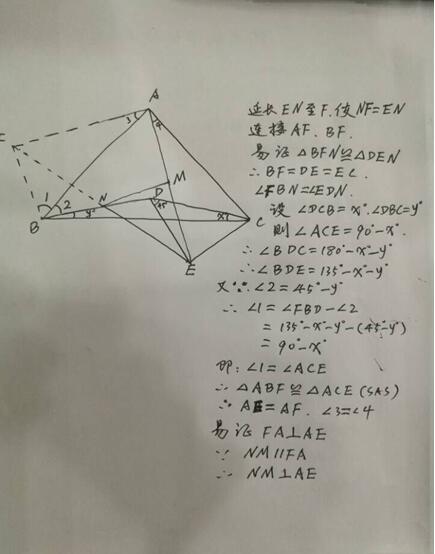 A
3
4
F
M
N
D
1
2
y°
45°
x°
B
C
E
延长EN至F.使NF=EN
连接AF、BF.
易证△BFN≌△DEN
∴BF=DE=EC.
∠FBN=∠EDN.
设 ∠DCB=x°.∠DBC=y°
则∠ACE=90°-x°.
∴∠BDC=180°-x°-y°
∴∠BDE=135°-x°-y°
又∵∠2=45°-y°
∴∠1=∠FBD-∠2
=135°-x°-y°-(45°-y°)
=90°-x°
即:∠1=∠ACE
∴△ABF≌△ACE(SAS)
∴AE=AF.∠3=∠4
易证 FA⊥AE
∵ NM∥FA
∴ NM⊥AE